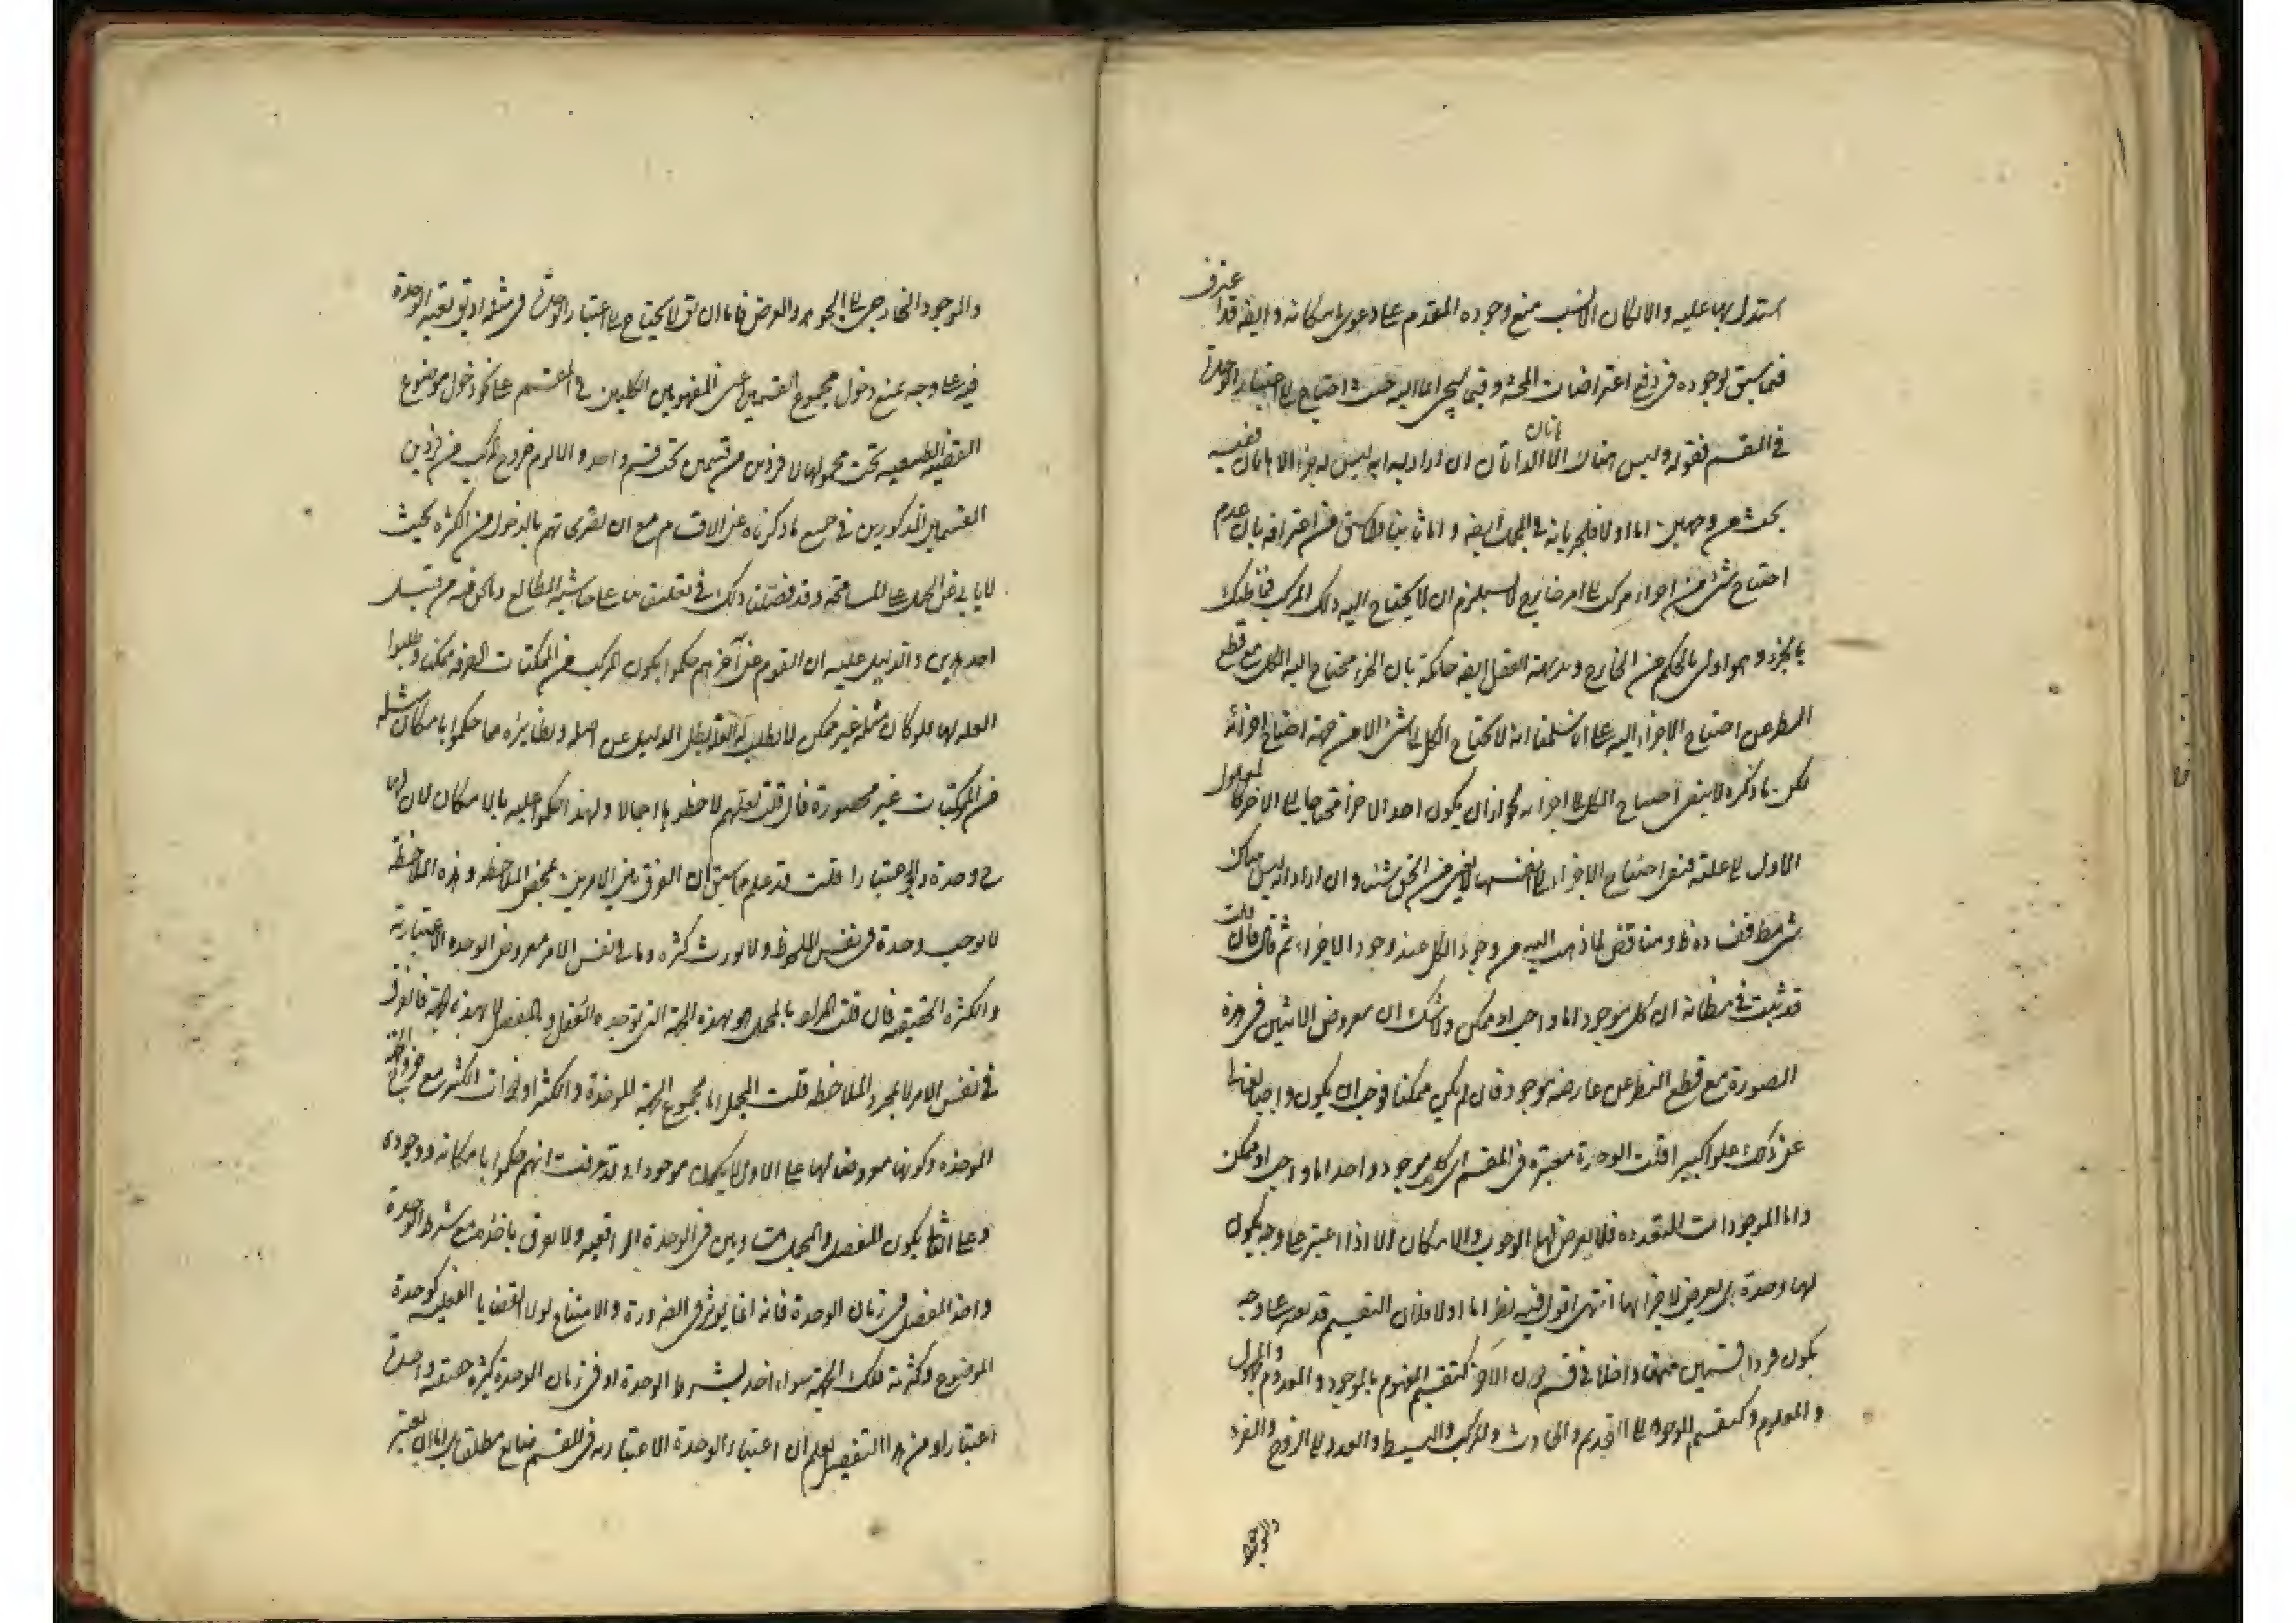 استدل بها عليه والامكان منع وجوده المقدم على دعوى امكانه وايضا قد اعترف
فيما سبق بوجوده في دفع اعتراضات المحشي وفيما سيجيء اما اليه حيث احتاج الى اعتبار الوحدة
في المقسم فقوله وليس هناك الا اثنان ان اراد به انه ليس له جزء الا اثنان ففيه
بحث من وجهين اما اولا فلجريانه في المجمل ايضا واما ثانيا فلما سبق من اعترافه بان عدم
احتياج شيء من اجزاء مركب الى امر خارج لا يستلزم ان لا يحتاج اليه ذلك المركب فما ظنك
بالجزء وهو اولى بالحكم من الخارج وبديهة العقل ايضا حاكمة بان الجزء محتاج اليه الكل مع قطع
النظر عن احتياج الاجزاء اليه على انا سلمنا انه لا يحتاج الكل الى شيء الا من جهة احتياج اجزائه
لكن ما ذكره لا ينفي احتياج الكل الى اجزائه لجواز ان يكون احد الاجزاء محتاجا الى الاخر كالمعلول
الاول الى علته فنفى احتياج الاجزاء الى انفسها لا يغني من الحق شيئا وان اراد انه ليس هناك
شيء فقط ففساده ظ ومناقض لما ذهب اليه من وجود الكل عند وجود الاجزاء ثم قال فان قلت
قد ثبت في مظانه ان كل موجود اما واجب او ممكن ولا شك ان معروض الاثنين في هذه
الصورة مع قطع النظر عن عارضه موجود فان لم يكن ممكنا فوجب ان يكون واجبا تعالى
عن ذلك علوا كبيرا قلت الوحدة معتبرة في المقسم اي كل موجود واحد اما واجب او ممكن
واما الموجودات المتعددة فلا يعرض لها الوجوب والامكان الا اذا اعتبر على وجه يكون
لها وحدة بل يعرض لاجزائها انتهى اقول فيه نظر اما اولا فلان التقسيم قد يعم على وجه
يكون فردا قسمين منهما داخلا في قسم دون الآخر كتقسيم المفهوم بالموجود والمعدوم والمجهول
والمعلوم وكتقسيم الموجود الى القديم والحادث والمركب والبسيط والعدد الى الزوج والفرد
والموجود
والموجود الخارجي الى الجوهر والعرض فاما ان يق لا يحتاج الى اعتبار الوحدة في مثله او يق بقيد الوحدة
فيه على وجه يمنع دخول مجموع القسمين عن المفهومين الكليين في المقسم على نحو دخول موضوع
القضية الطبيعية تحت محمولها لا فردين من قسمين تحت قسم واحد والا لزم خروج المركب من فردين
القسمين المذكورين في جميع ما ذكرناه من الاقسام مع ان بعضهم بالدخول من الكثرة بحيث
لا يابى عن الحمل على المسامحة وقد فصلنا ذلك في تعليقنا على حاشية المطالع والحق فيه من قبيل
احد هذين والدليل عليه ان القوم عن آخرهم حكموا بكون المركب من الممكنات الصرفة ممكنا وطلبوا
العلة لها فلو كان مثله غير ممكن لا يطلب له العلة بطل الدليل عن اصله ونظائره مما حكموا بامكان مثله
من المركبات غير محصورة فان قلت لعلهم لاحظوها اجمالا ولهذا حكموا عليه بالامكان لان لها
ح وحدة ولو اعتبارا قلت قد علم مما سبق ان الفرق بين الامرين بمحض الملاحظة وهذه الملاحظة
لا توجب وحدة في نفس الملحوظ ولا تورث كثرة وما في نفس الامر معروض الوحدة الاعتبارية
والكثرة الحقيقية فان قلت المراد بالمجمل هو بهذه الجهة التي توحده العقل وبالمفصل لا بهذه الجهة فالفرق
في نفس الامر لا بمجرد الملاحظة قلت المجمل اما مجموع الجهة الموحدة والكثرة او ذات الكثير مع خروج الجهة
الموحدة وكونها معروضا لها على الاول لا يكون موجودا وقد عرفت انهم حكموا بامكانه ووجوده
وعلى الثاني يكون المفصل والمجمل متساويين في الوحدة الواقعية ولا يفرق باخذه مع شرط الوحدة
واخذ المفصل في زمان الوحدة فانه انما يؤثر في الضرورة والامتناع لولا القضايا الفعلية كوحدة
الموضوع وكثرته تلك الجهة سواء اخذ بشرط الوحدة او في زمان الوحدة كثيرة حقيقة واحدة
اعتبارا ومن هذا التفصيل يعلم ان اعتبار الوحدة الاعتبارية في المقسم ضايع مطلقا بل اما ان يعتبر